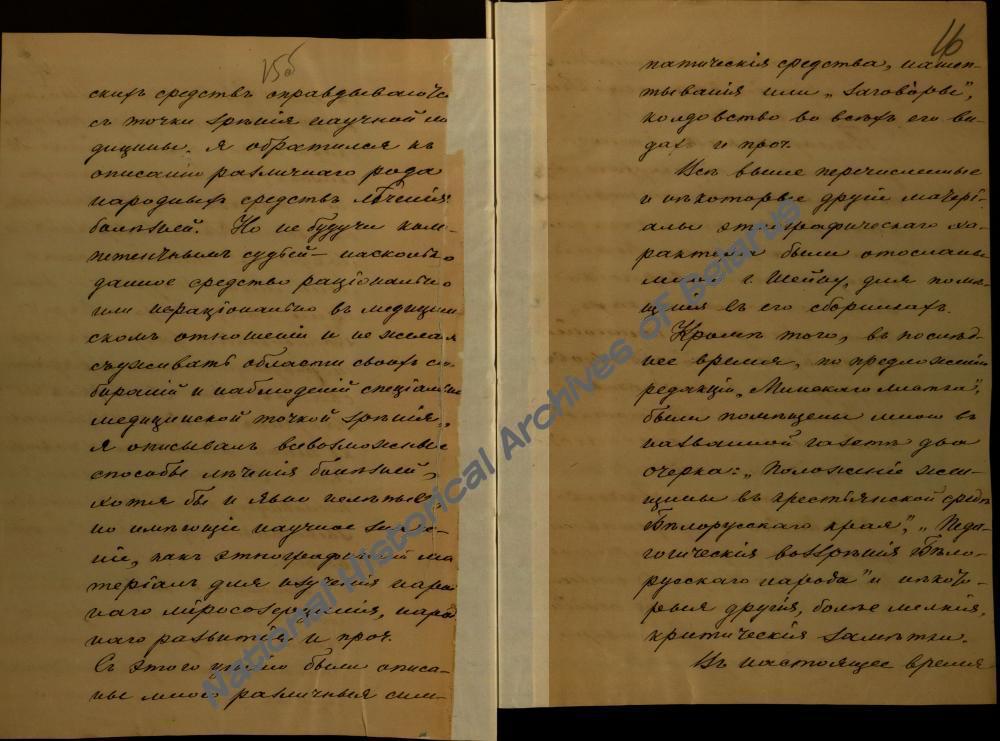 15об
скихъ средствъ оправдываются
съ точки зрѣнія научной ме
дицины. Я обратился къ
описанію различнаго рода
народныхъ средствъ лѣченія
болѣзней. Но не будучи ком-
петентнымъ судьей – насколько
данное средство раціонально
или нераціонально въ медицин
скомъ отношеніи и не желая
съуживать области своихъ со
бираній и наблюденій спеціально
медицинской точкой зрѣнія,
я описывалъ всевозможные
способы лѣченія болѣзней,
хотя бы и явно нелѣпые,
но имѣющіе научное значе-
ніе, какъ этнографическій ма
теріалъ для изученія народ
наго міросозерцанія, народ
наго развитія и проч.
Съ этого цѣлію были описа-
ны мною различныя сим-
16
патическія средства, нашеп-
тыванія или „заговоры",
колдовство во всѣхъ его ви-
дахъ и проч.
Всѣ выше перечисленные
и нѣкоторые другіе матері-
алы этнографическаго ха-
рактера были отосланы
мною г. Шейну, для помѣ-
щенія въ его сборникахъ.
Кромѣ того, въ послѣд-
нее время, по предложенію
редакціи „Минскаго Листка",
были помѣщены мною въ
названной газетѣ два
очерка: „Положеніе жен-
щины въ крестьянской средѣ
Бѣлорусскаго края", „Педа-
гогическія воззрѣнія Бѣло-
русскаго народа" и нѣкото-
рыя другія, болѣе мелкія,
критическія замѣтки.
Въ настоящее время
National Historical Archives of Belarus